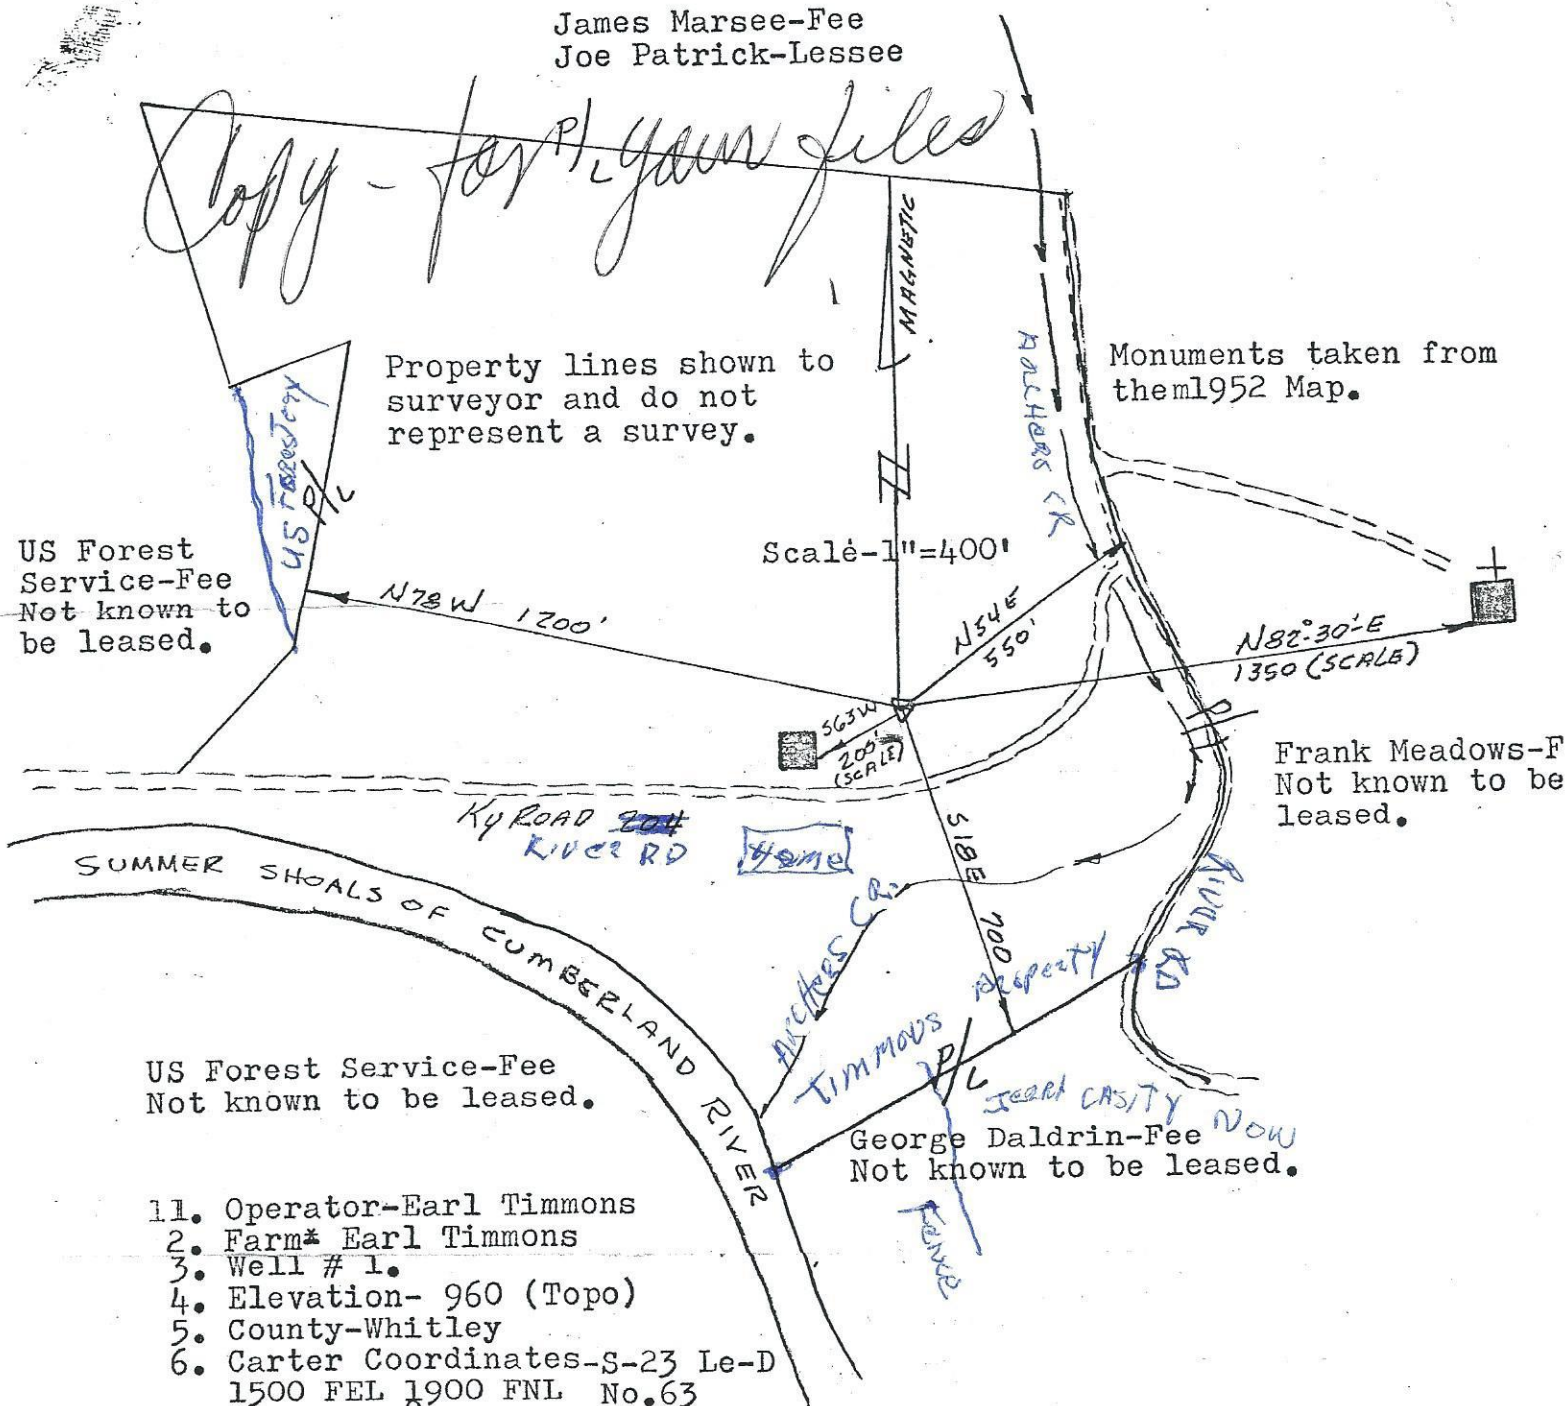 James Marsee-Fee
Joe Patrick-Lessee
Copy - for your files
P/L
MAGNETIC
Property lines shown to
surveyor and do not
represent a survey.
Monuments taken from
them1952 Map.
ARCHERS CR
US Forestory
P/L
Scale-1"=400'
US Forest
Service-Fee
Not known to
be leased.
N78W 1200'
N54E
550'
N82°-30'-E
1350 (SCALE)
S63W
200'
(SCALE)
P
Frank Meadows-F
Not known to be
leased.
Ky ROAD 204
RIVER RD
Home
S18E
700
SUMMER SHOALS OF CUMBERLAND RIVER
ARCHERS CR.
RIVER RD
TIMMONS Property
P/L
US Forest Service-Fee
Not known to be leased.
JERRY CASITY NOW
George Daldrin-Fee
Not known to be leased.
Fence
11. Operator-Earl Timmons
2. Farm* Earl Timmons
3. Well # 1.
4. Elevation- 960 (Topo)
5. County-Whitley
6. Carter Coordinates-S-23 Le-D
1500 FEL 1900 FNL No.63